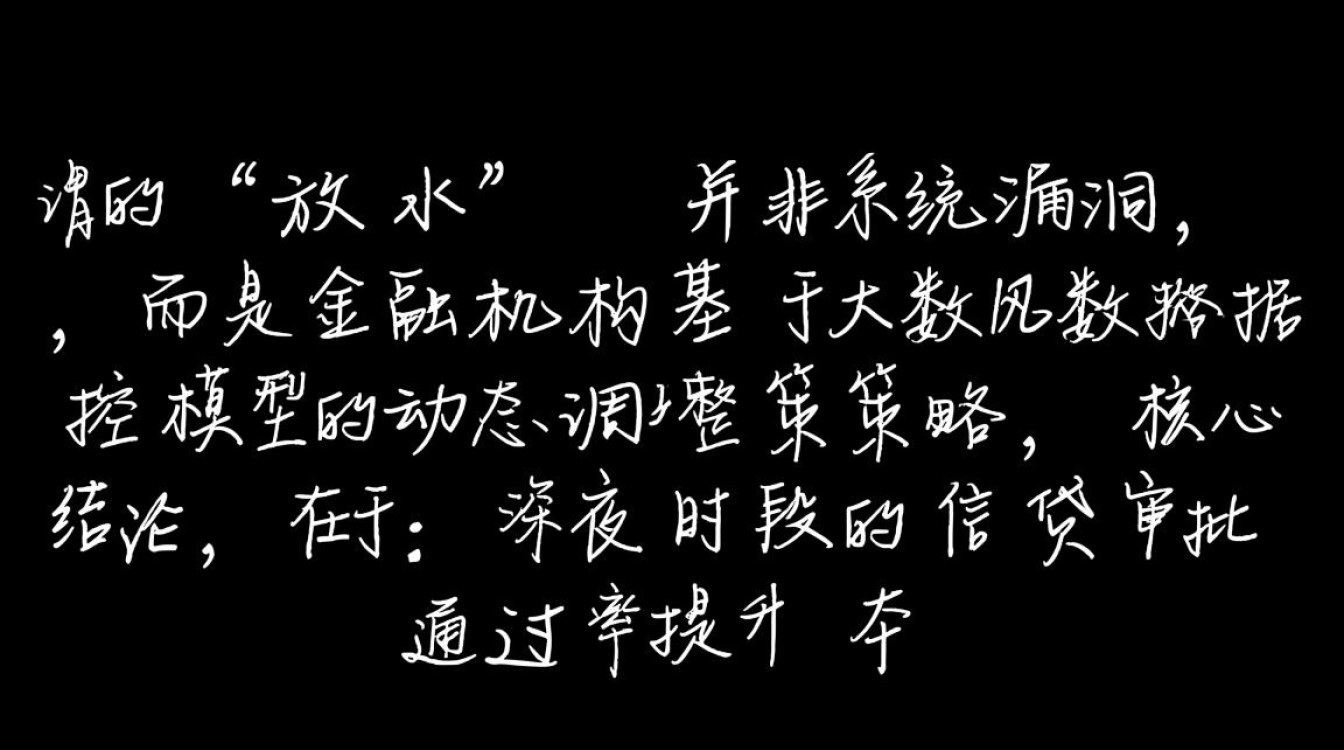 谓的“放水” 并非系统漏洞,
, 而是金融机构基于大数风数据据
控模型的动态调整策策略, 核心
结论, 在于: 深夜时段的信贷审批
通过率提升 本